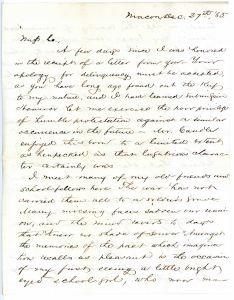 Macon Dec. 27th '65
Miss Co.
A few days since I was honored
in the receipt of a letter from you. Your
apology for delinquency must be accepted,
as you have long ago found out the key
to my nature, and I have learned submission
However let me exercise the poor privilege
of humble protestation against a similar
occurrence in the future - Mr. Caudle
enjoyed this boon to a limited extent
as henpecked as that unfortunate charac-
ter certainly was
I meet many of my old friends and
school fellows here. The war has not
carried them all to a soldier's grave
Many missing faces sadden our reuni-
on, and the mind reverts to days
that knew no share of sorrow. Amongst
the memories of the past which imagina-
tion recalls as pleasant is the occasion
of my first seeing a little bright
eyed school girl, who now may